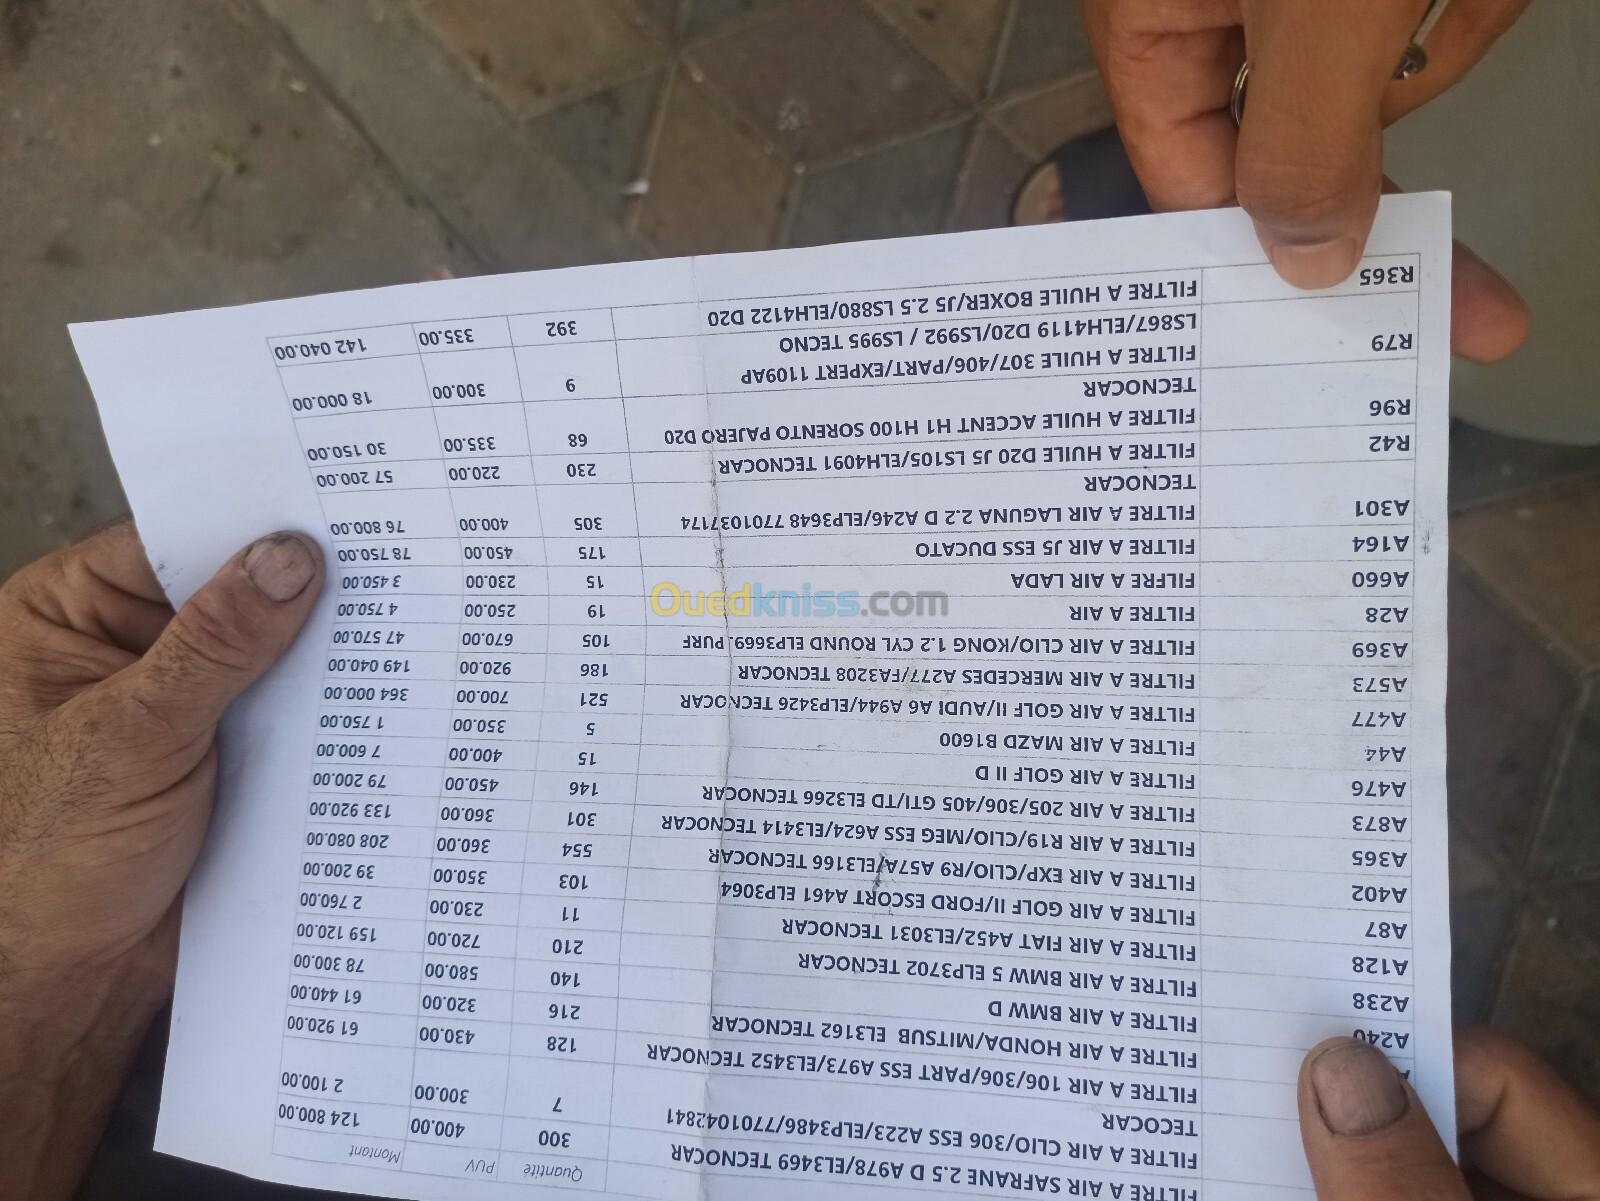 Quantité PUV Montant
FILTRE A AIR SAFRANE 2.5 D A978/EL3469 TECNOCAR 300 400.00 124 800.00
FILTRE A AIR CLIO/306 ESS A223/ELP3486/7701042841 7 300.00 2 100.00
TECOCAR
FILTRE A AIR 106/306/PART ESS A973/EL3452 TECNOCAR 128 430.00 61 920.00
FILTRE A AIR HONDA/MITSUB EL3162 TECNOCAR 216 320.00 61 440.00
A240 FILTRE A AIR BMW D 140 580.00 78 300.00
A238 FILTRE A AIR BMW 5 ELP3702 TECNOCAR 210 720.00 159 120.00
A128 FILTRE A AIR FIAT A452/EL3031 TECNOCAR 11 230.00 2 760.00
A87 FILTRE A AIR GOLF II/FORD ESCORT A461 ELP3064 103 350.00 39 200.00
A402 FILTRE A AIR EXP/CLIO/R9 A57A/EL3166 TECNOCAR 554 360.00 208 080.00
A365 FILTRE A AIR R19/CLIO/MEG ESS A624/EL3414 TECNOCAR 301 360.00 133 920.00
A873 FILTRE A AIR 205/306/405 GTI/TD EL3266 TECNOCAR 146 450.00 79 200.00
A476 FILTRE A AIR GOLF II D 15 400.00 7 600.00
A44 FILTRE A AIR MAZD B1600 5 350.00 1 750.00
A477 FILTRE A AIR GOLF II/AUDI A6 A944/ELP3426 TECNOCAR 521 700.00 364 000.00
A573 FILTRE A AIR MERCEDES A277/FA3208 TECNOCAR 186 920.00 149 040.00
A369 FILTRE A AIR CLIO/KONG 1.2 CYL ROUND ELP3669. PURF 105 670.00 47 570.00
A28 FILTRE A AIR 19 250.00 4 750.00
A660 FILFRE A AIR LADA 15 230.00 3 450.00
A164 FILTRE A AIR J5 ESS DUCATO 175 450.00 78 750.00
A301 FILTRE A AIR LAGUNA 2.2 D A246/ELP3648 7701037174 305 400.00 76 800.00
TECNOCAR
R42 FILTRE A HUILE D20 J5 LS105/ELH4091 TECNOCAR 230 220.00 57 200.00
R96 FILTRE A HUILE ACCENT H1 H100 SORENTO PAJERO D20 68 335.00 30 150.00
TECNOCAR
R79 FILTRE A HUILE 307/406/PART/EXPERT 1109AP 9 300.00 18 000.00
LS867/ELH4119 D20/LS992 / LS995 TECNO
R365 FILTRE A HUILE BOXER/J5 2.5 LS880/ELH4122 D20 392 335.00 142 040.00
Ouedkniss.com